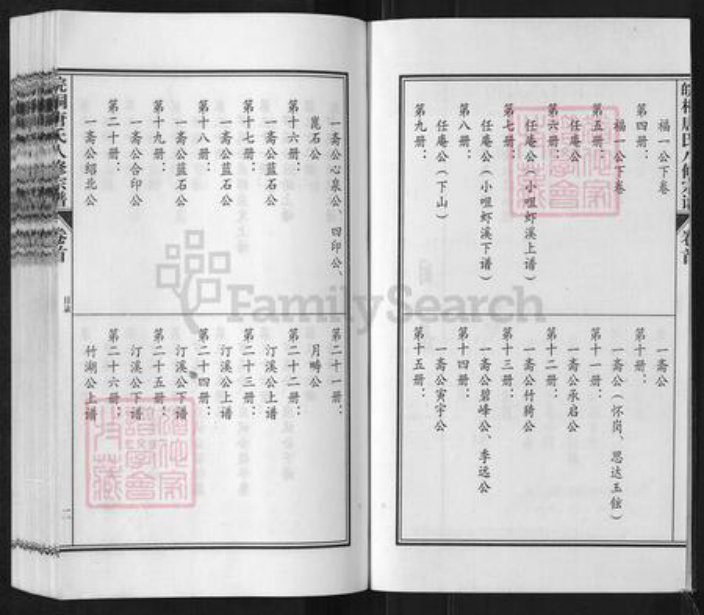 福一公下卷
第四册：
福一公下卷
第五册：
任庵公
第六册：
任庵公（小咀虾溪上谱）
第七册：
任庵公（小咀虾溪下谱）
第八册：
任庵公（下山）
第九册：
一斋公
第十册：
一斋公（怀岗、思达玉铉）
第十一册：
一斋公承启公
第十二册：
一斋公竹犄公
第十三册：
一斋公碧峰公、季远公
第十四册：
一斋公寅宇公
第十五册：
卷首
一斋公心泉公、四印公、
崑石公
第十六册：
一斋公蓝石公
第十七册：
一斋公蓝石公
第十八册：
一斋公蓝石公
第十九册：
一斋公合印公
第二十册：
一斋公绍北公
第二十一册：
月畴公
第二十二册：
汀溪公上谱
第二十三册：
汀溪公上谱
第二十四册：
汀溪公下谱
第二十五册：
汀溪公下谱
第二十六册：
竹湖公上谱
皖桐唐氏八修宗谱
卷首
目录
二
FamilySearch